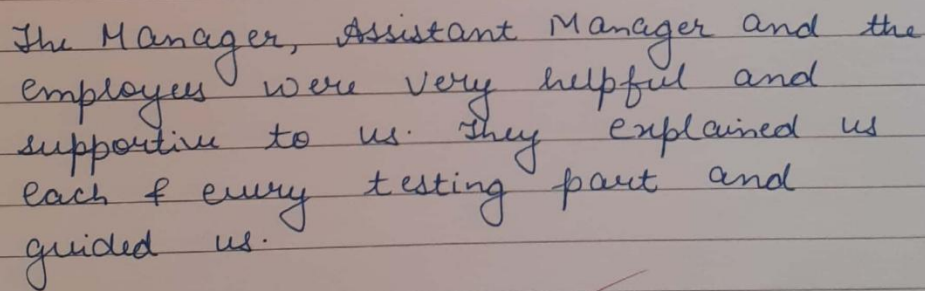 The Manager, Assistant Manager and the
employees were very helpful and
supportive to us. They explained us
each & every testing part and
guided us.